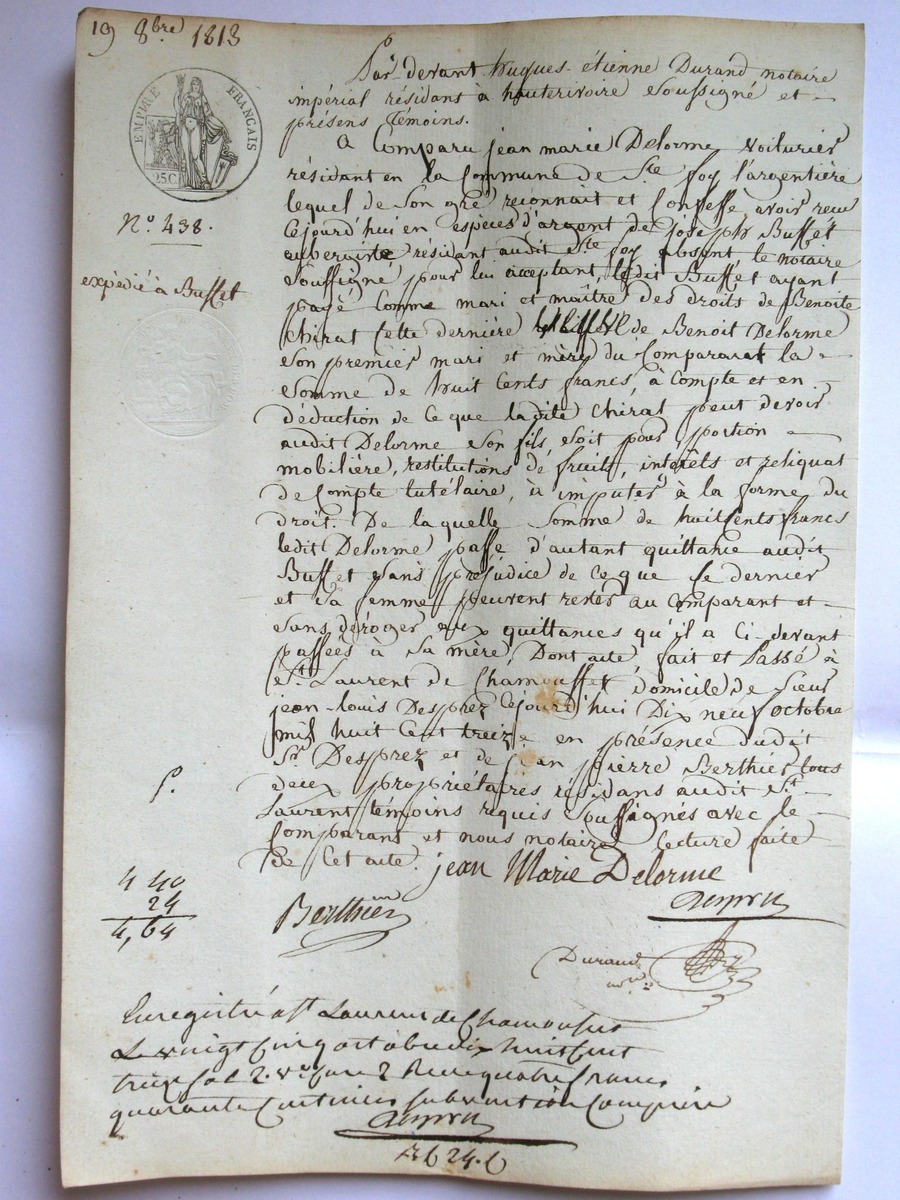 19 8bre 1813
EMPIRE FRANÇAIS
25 C.
N° 438.
expédié à Buffet
Par devant hugues étienne Durand notaire
impérial résidans à hauterivoire soussigné et
présens témoins.
a Comparu jean marie Delorme Voiturier
résidant en la Commune de Ste foy l'argentière
lequel de son gré reconnait et Confesse avoir reçu
Cejourd'hui en espèces d'argent de joseph Buffet
auberiste résidant audit Ste foy absent, le notaire
soussigné pour lui acceptant, ledit Buffet ayant
payé Comme mari et maître des droits de Benoite
Chirat Cette dernière de Benoit Delorme
son premier mari et mère du Comparant la
somme de huit Cents francs, à Compte et en
déduction de Ce que ladite Chirat peut devoir
audit Delorme son fils, soit pour portion
mobilière, restitutions de fruits, intérêts et reliquat
de Compte tutélaire, à imputer à la forme du
droit. De laquelle somme de huit Cents francs
ledit Delorme passe d'autant quittance audit
Buffet sans préjudice de Ce que Ce dernier
et sa femme peuvent rester au Comparant et
sans déroger aux quittances qu'il a Ci-devant
passées à Sa mère, Dont acte, fait et Passé à
St Laurent de Chamousset domicile de Sieur
jean-louis Desprez Cejourd'hui Dix neuf octobre
mil huit Cent treize en présence dudit
Sr Desprez et de jean pierre Berthier tous
deux propriétaires résidans audit St
Laurent témoins requis soussignés avec le
Comparant et nous notaire, lecture faite
de Cet acte.
jean Marie Delorme
Berthier
Durand
4 40
24
4,64
Enregistré à St Laurent de Chamousset
Le vingt cinq octobre dix huit cent
treize fol 2. Vo Case 2 Reçu quatre francs
quarante Centimes subvention Comprise